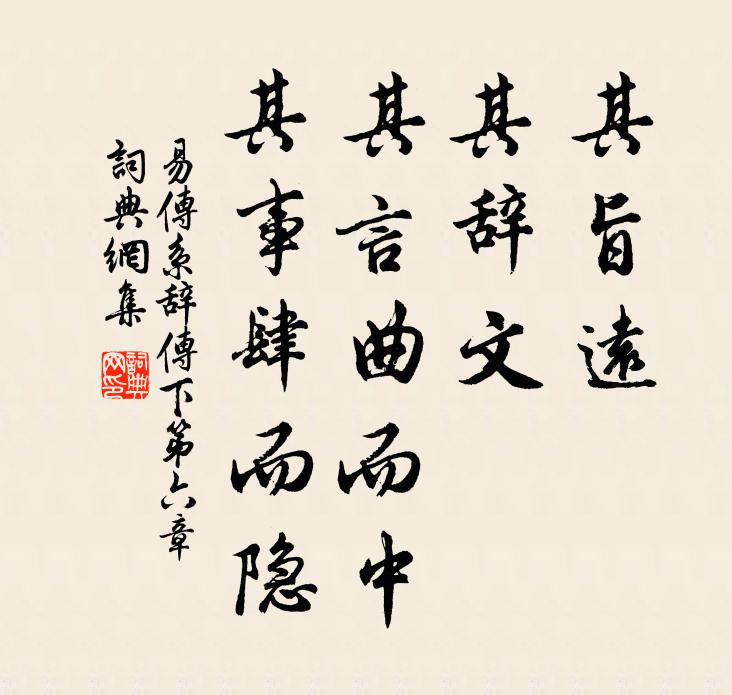 其旨遠
其辞文
其言曲而中
其事肆而隐
易傳系辞傳下第六章
詞典網集
詞典网印